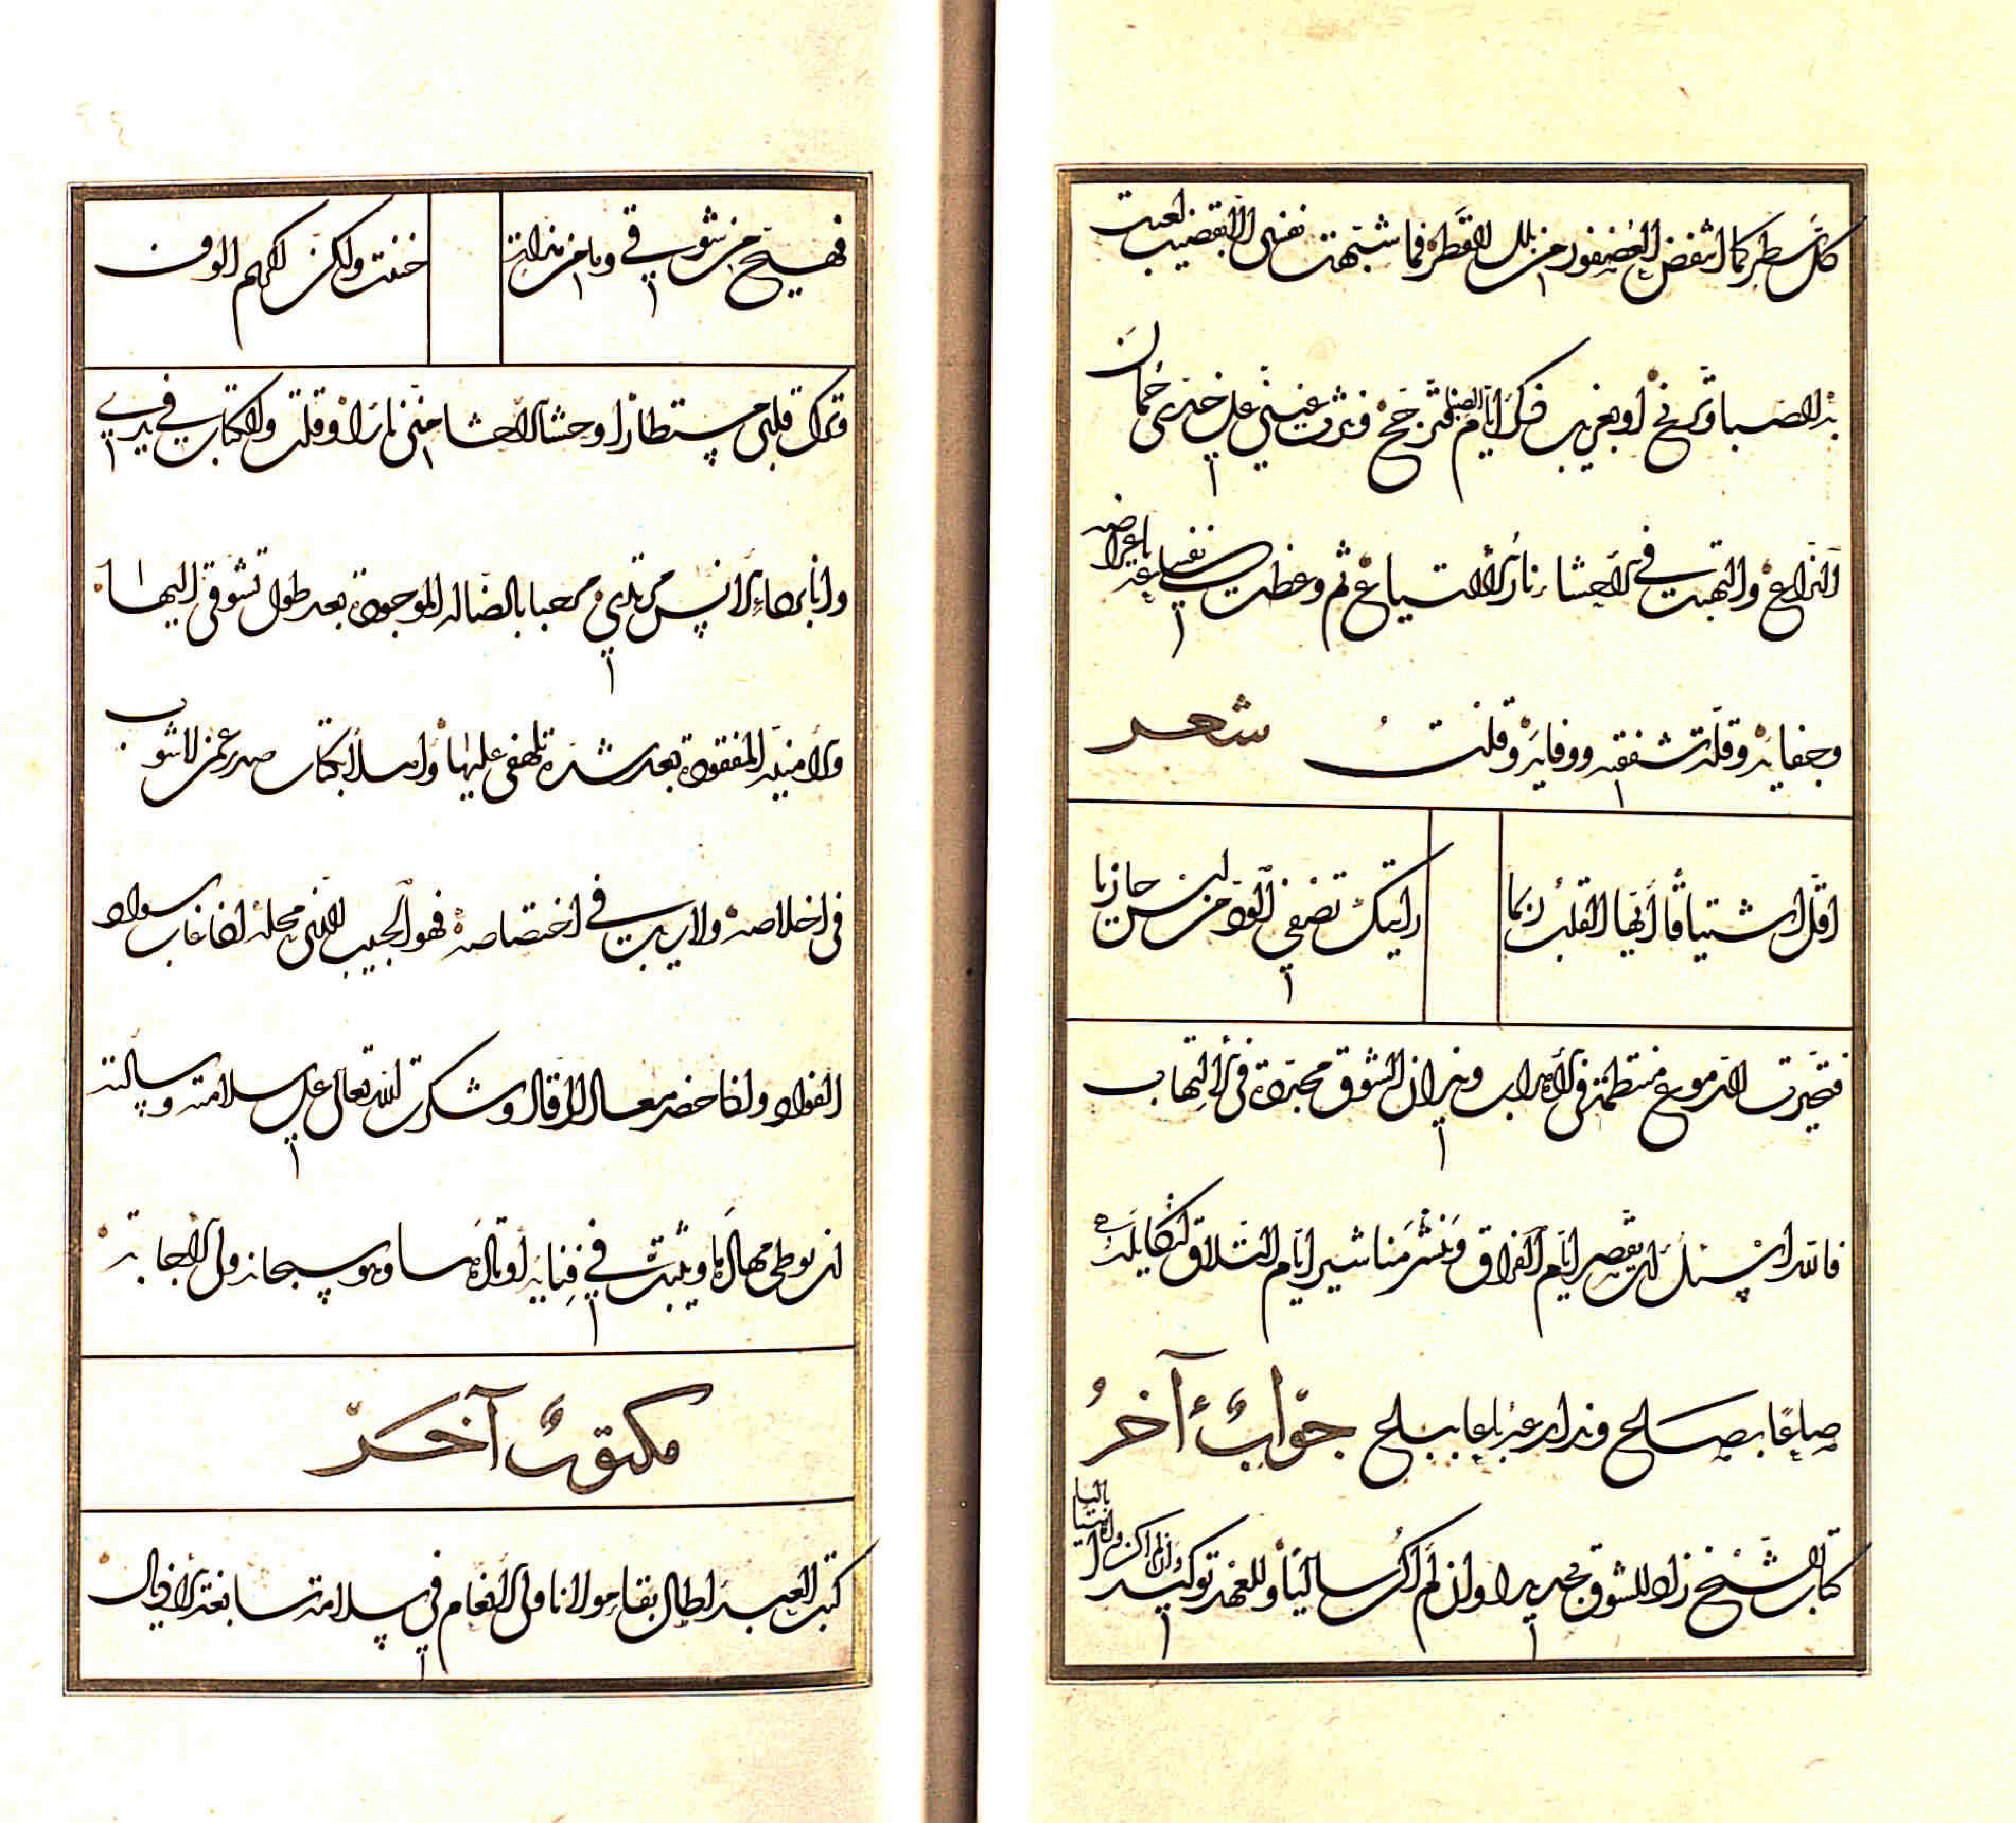 كل سطر كما انتفض العصفور من بلل القطر فما شبهت نفسي الا بقضيب لعبت
به الصبا وتريح او بغريب ذكر ايام الصبا فترجح فذرت عيني على خدي جمان
النزاع والتهبت في الاحشاء نار الالتياع ثم وعظت نفسي باعراضه
وجفائه وقلة شفقته ووفائه وقلت
شعر
اقل اشتياقا ايها القلب ربما
رايتك تصفي الود من ليس جازيا
فتحيرت الدموع منتظمة في الاهداب ونيران الشوق مجدة في الالتهاب
فالله اسئل ان يقصر ايام الفراق وينشر مناشير ايام التلاق لنكايله
صاعا بصاع وذراعا بباع
جواب آخر
كتاب الشيخ زاد للشوق تجديدا وان لم اكن ساليا وللعهد توكيدا وان لم اكن
فهيج من شوقي وما من مذلة
حننت ولكن الكريم الوف
وترك قلبي مستطارا وحشا الاحشا مني نارا وقلت والكتاب في يدي
وانا برداء الانس مرتدي مرحبا بالضالة الموجودة بعد طول تشوقي اليها
والامنية المفقودة بعد شدة تلهفي عليها واهلا بكتاب صدر عمن لا شوب
في اخلاصه ولا ريب في اختصاصه فهو الحبيب الذي محله اذا غاب سواد
الفواد واذا حضر معالي الاقدار وشكرت الله تعالى على سلامته وسالته
ان يوطئ مهادها ويثبت في فنائه اوتادها وهو سبحانه ولي الاجابة
مكتوب آخر
كتب العبد اطال بقاء مولانا ولي الانعام في سلامة سابغة الاذيال